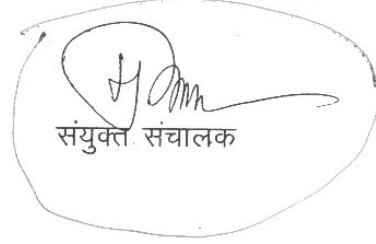 संयुक्त संचालक